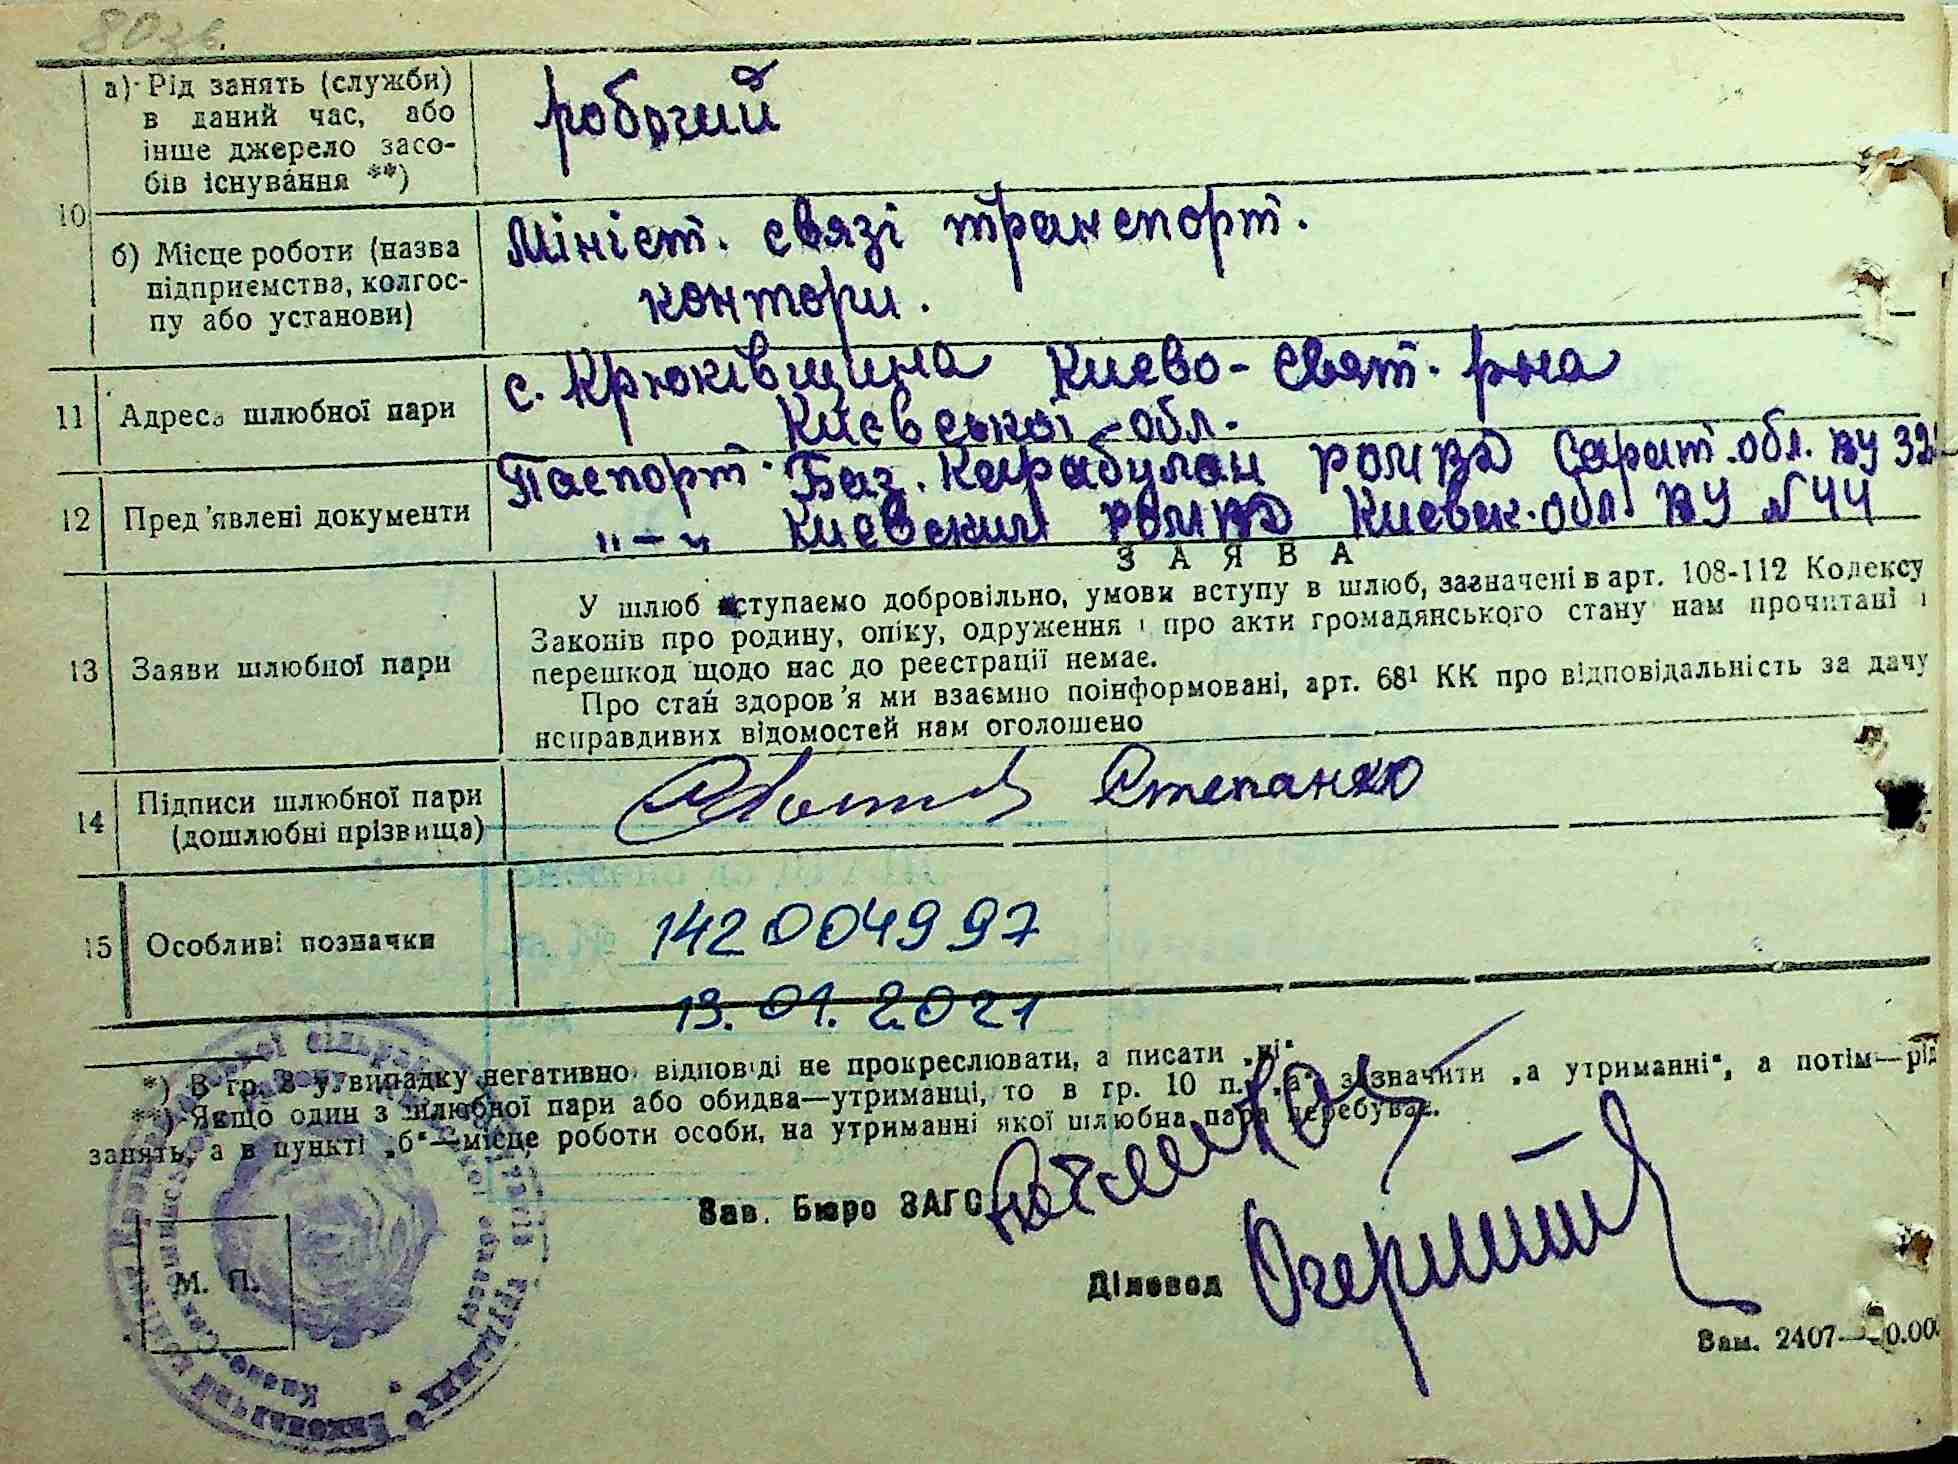 80 зв.
а) Рід занять (служби)
в даний час, або
інше джерело засо-
бів існування **)
робочий
10
б) Місце роботи (назва
підприємства, колгос-
пу або установи)
Мініст. связі транспорт.
контори.
11 Адреса шлюбної пари
с. Крюківщина Києво-Свят. р-на
Києвської обл.
12 Пред'явлені документи
Паспорт. Баз. Карабулак РОМВД Сарат. обл. ВУ 32
"—" Киевским РОМВД Киевск. обл. ВУ №44
ЗАЯВА
13 Заяви шлюбної пари
У шлюб вступаємо добровільно, умови вступу в шлюб, зазначені в арт. 108-112 Кодексу
Законів про родину, опіку, одруження і про акти громадянського стану нам прочитані і
перешкод щодо нас до реєстрації немає.
Про стан здоров'я ми взаємно поінформовані, арт. 68¹ КК про відповідальність за дачу
несправдивих відомостей нам оголошено
14 Підписи шлюбної пари
(дошлюбні прізвища)
Степанко
15 Особливі позначки
1420004997
13.01.2021
*) В гр. 8 у випадку негативно відповіді не прокреслювати, а писати „ні“
**) Якщо один з шлюбної пари або обидва—утриманці, то в гр. 10 п. „а“ зазначити „а утриманні“, а потім—рід
занять, а в пункті „б“—місце роботи особи, на утриманні якої шлюбна пара перебуває.
Зав. Бюро ЗАГС
Діловод
М. П.
Зам. 2407—